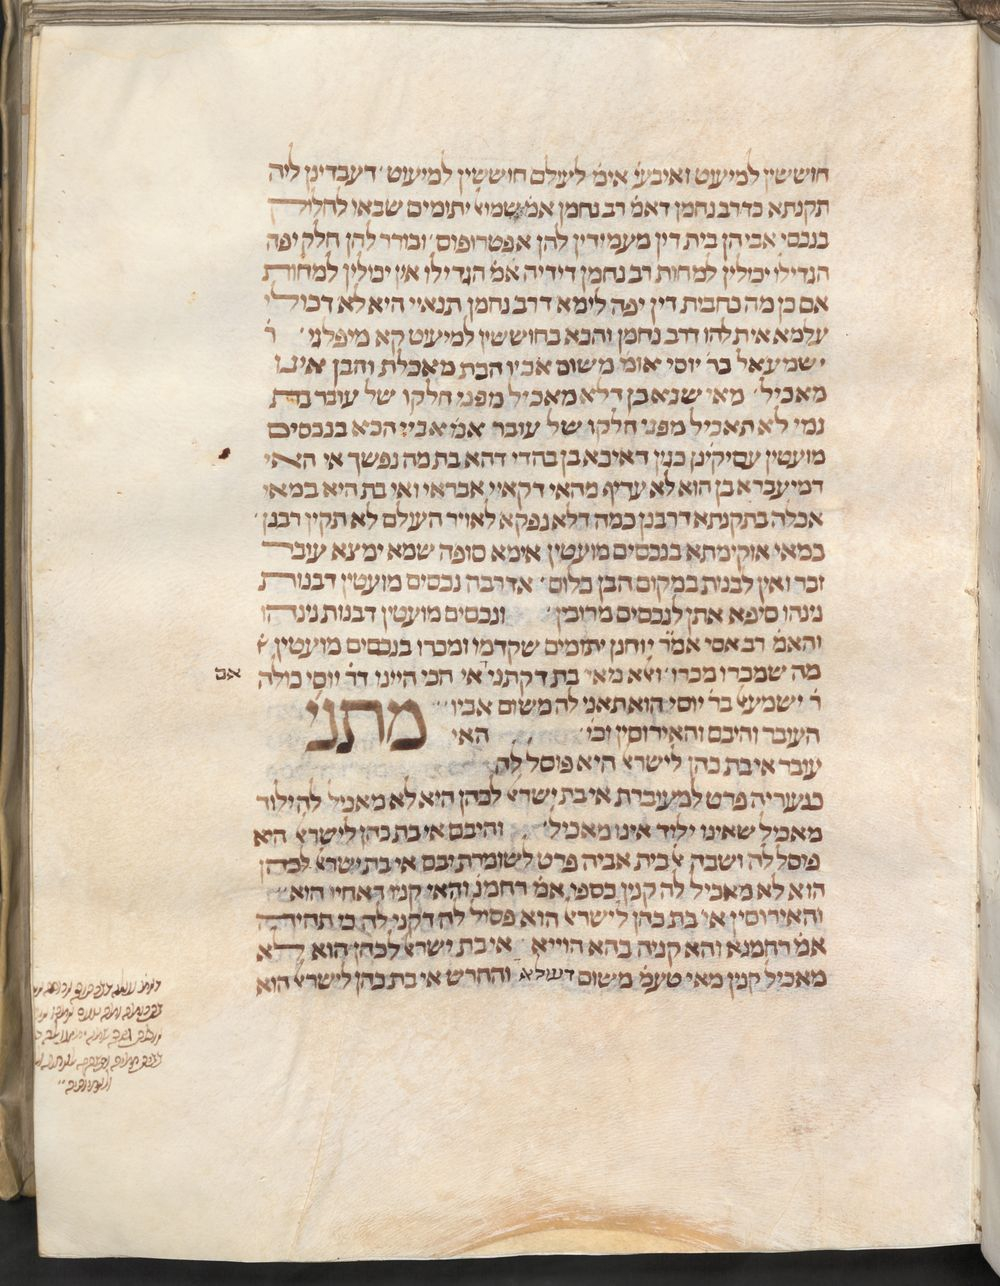 חוששין למיעוט ואיבע׳ אימ׳ לעולם חוששין למיעוט׳ דעבדינן ליה
תקנתא כדרב נחמן דאמ׳ רב נחמן אמ׳ שמוא׳ יתומים שבאו לחלוק
בנכסי אביהן בית דין מעמידין להן אפטרופוס׳ ובורר להן חלק יפה
הגדילו יכולין למחות רב נחמן דידיה אמ׳ הגדילו אין יכולין למחות
אם כן מה כח בית דין יפה לימא דרב נחמן תנאיי היא לא דכולי
עלמא אית להו דרב נחמן והכא בחוששין למיעוט קא מיפלגי׳ ר׳
ישמעאל בר׳ יוסי אומ׳ משום אביו הבת מאכלת והבן אינו
מאכיל׳ מאי שנא בן דלא מאכיל מפני חלקו של עובר בת
נמי לא תאכיל מפני חלקו של עובר אמ׳ אביי הכא בנכסים
מועטין עסיקינן כגון דאיכא בן בהדי דהא בת מה נפשך אי האי
דמיעברא בן הוא לא עדיף מהאי דקאיי אבראי ואי בת היא במאי
אכלה בתקנתא דרבנן כמה דלא נפקא לאויר העולם לא תקין רבנן׳
במאי אוקימתא בנכסים מועטין אימא סופה שמא ימצא עובר
זכר ואין לבנות במקום הבן כלום׳ אדרבה נכסים מועטין דבנות
נינהו סיפא אתן לנכסים מרובין׳ ונכסים מועטין דבנות נינהו
והאמ׳ רב אסי אמ״ר יוחנן יתומים שקדמו ומכרו בנכסים מועטין
מה שמכרו מכרו׳ ואלא מאי בת דקתני אי הכי היינו דר׳ יוסי כולה
אם
ר׳ ישמעאל בר׳ יוסי הוא תאני לה משום אביו׳
מתני׳
העובר והיבם והאירוסין וכו׳ האי
עובר אי בת כהן לישראל היא פוסל לה
כנעוריה פרט למעוברת אי בת ישראל לכהן היא לא מאכיל להילוד
מאכיל שאינו יליד אינו מאכיל׳ והיבם אי בת כהן לישראל היא
פוסל לה ושבה אל בית אביה פרט לשומרת יבם אי בת ישראל לכהן
הוא לא מאכיל לה קנין כספו אמ׳ רחמנ׳ והאי קניין דאחיו הוא
והאירוסין אי בת כהן לישראל הוא פסול לה דקני לה כי תהיה
אמ׳ רחמנא והא קניה בהא הוייא׳ אי בת ישראל לכהן הוא לא
מאכיל קנין מאי טעמ׳ משום דעולא והחרש אי בת כהן לישראל הוא